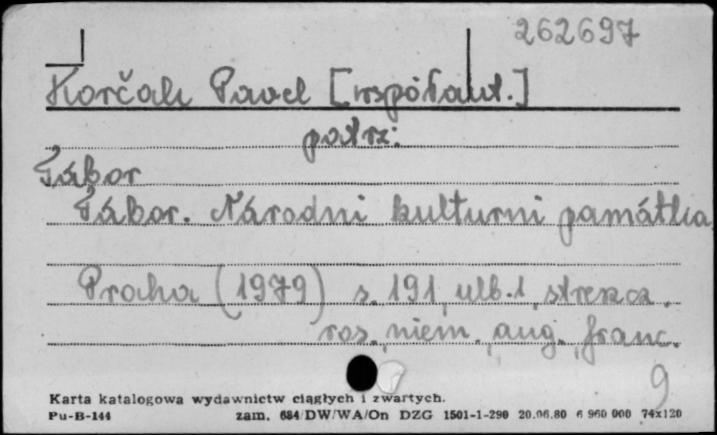 262697
Korčak Pavel [współaut.]
patrz:
Tábor
Tábor. Národni kulturni památka
Praha (1979) s. 191, ulb. 1, streszcz.
ros., niem., ang., franc.
9
Karta katalogowa wydawnictw ciągłych i zwartych.
Pu-B-144 zam. 684/DW/WA/On DZG 1501-1-290 20.06.80 6 960 000 74x120